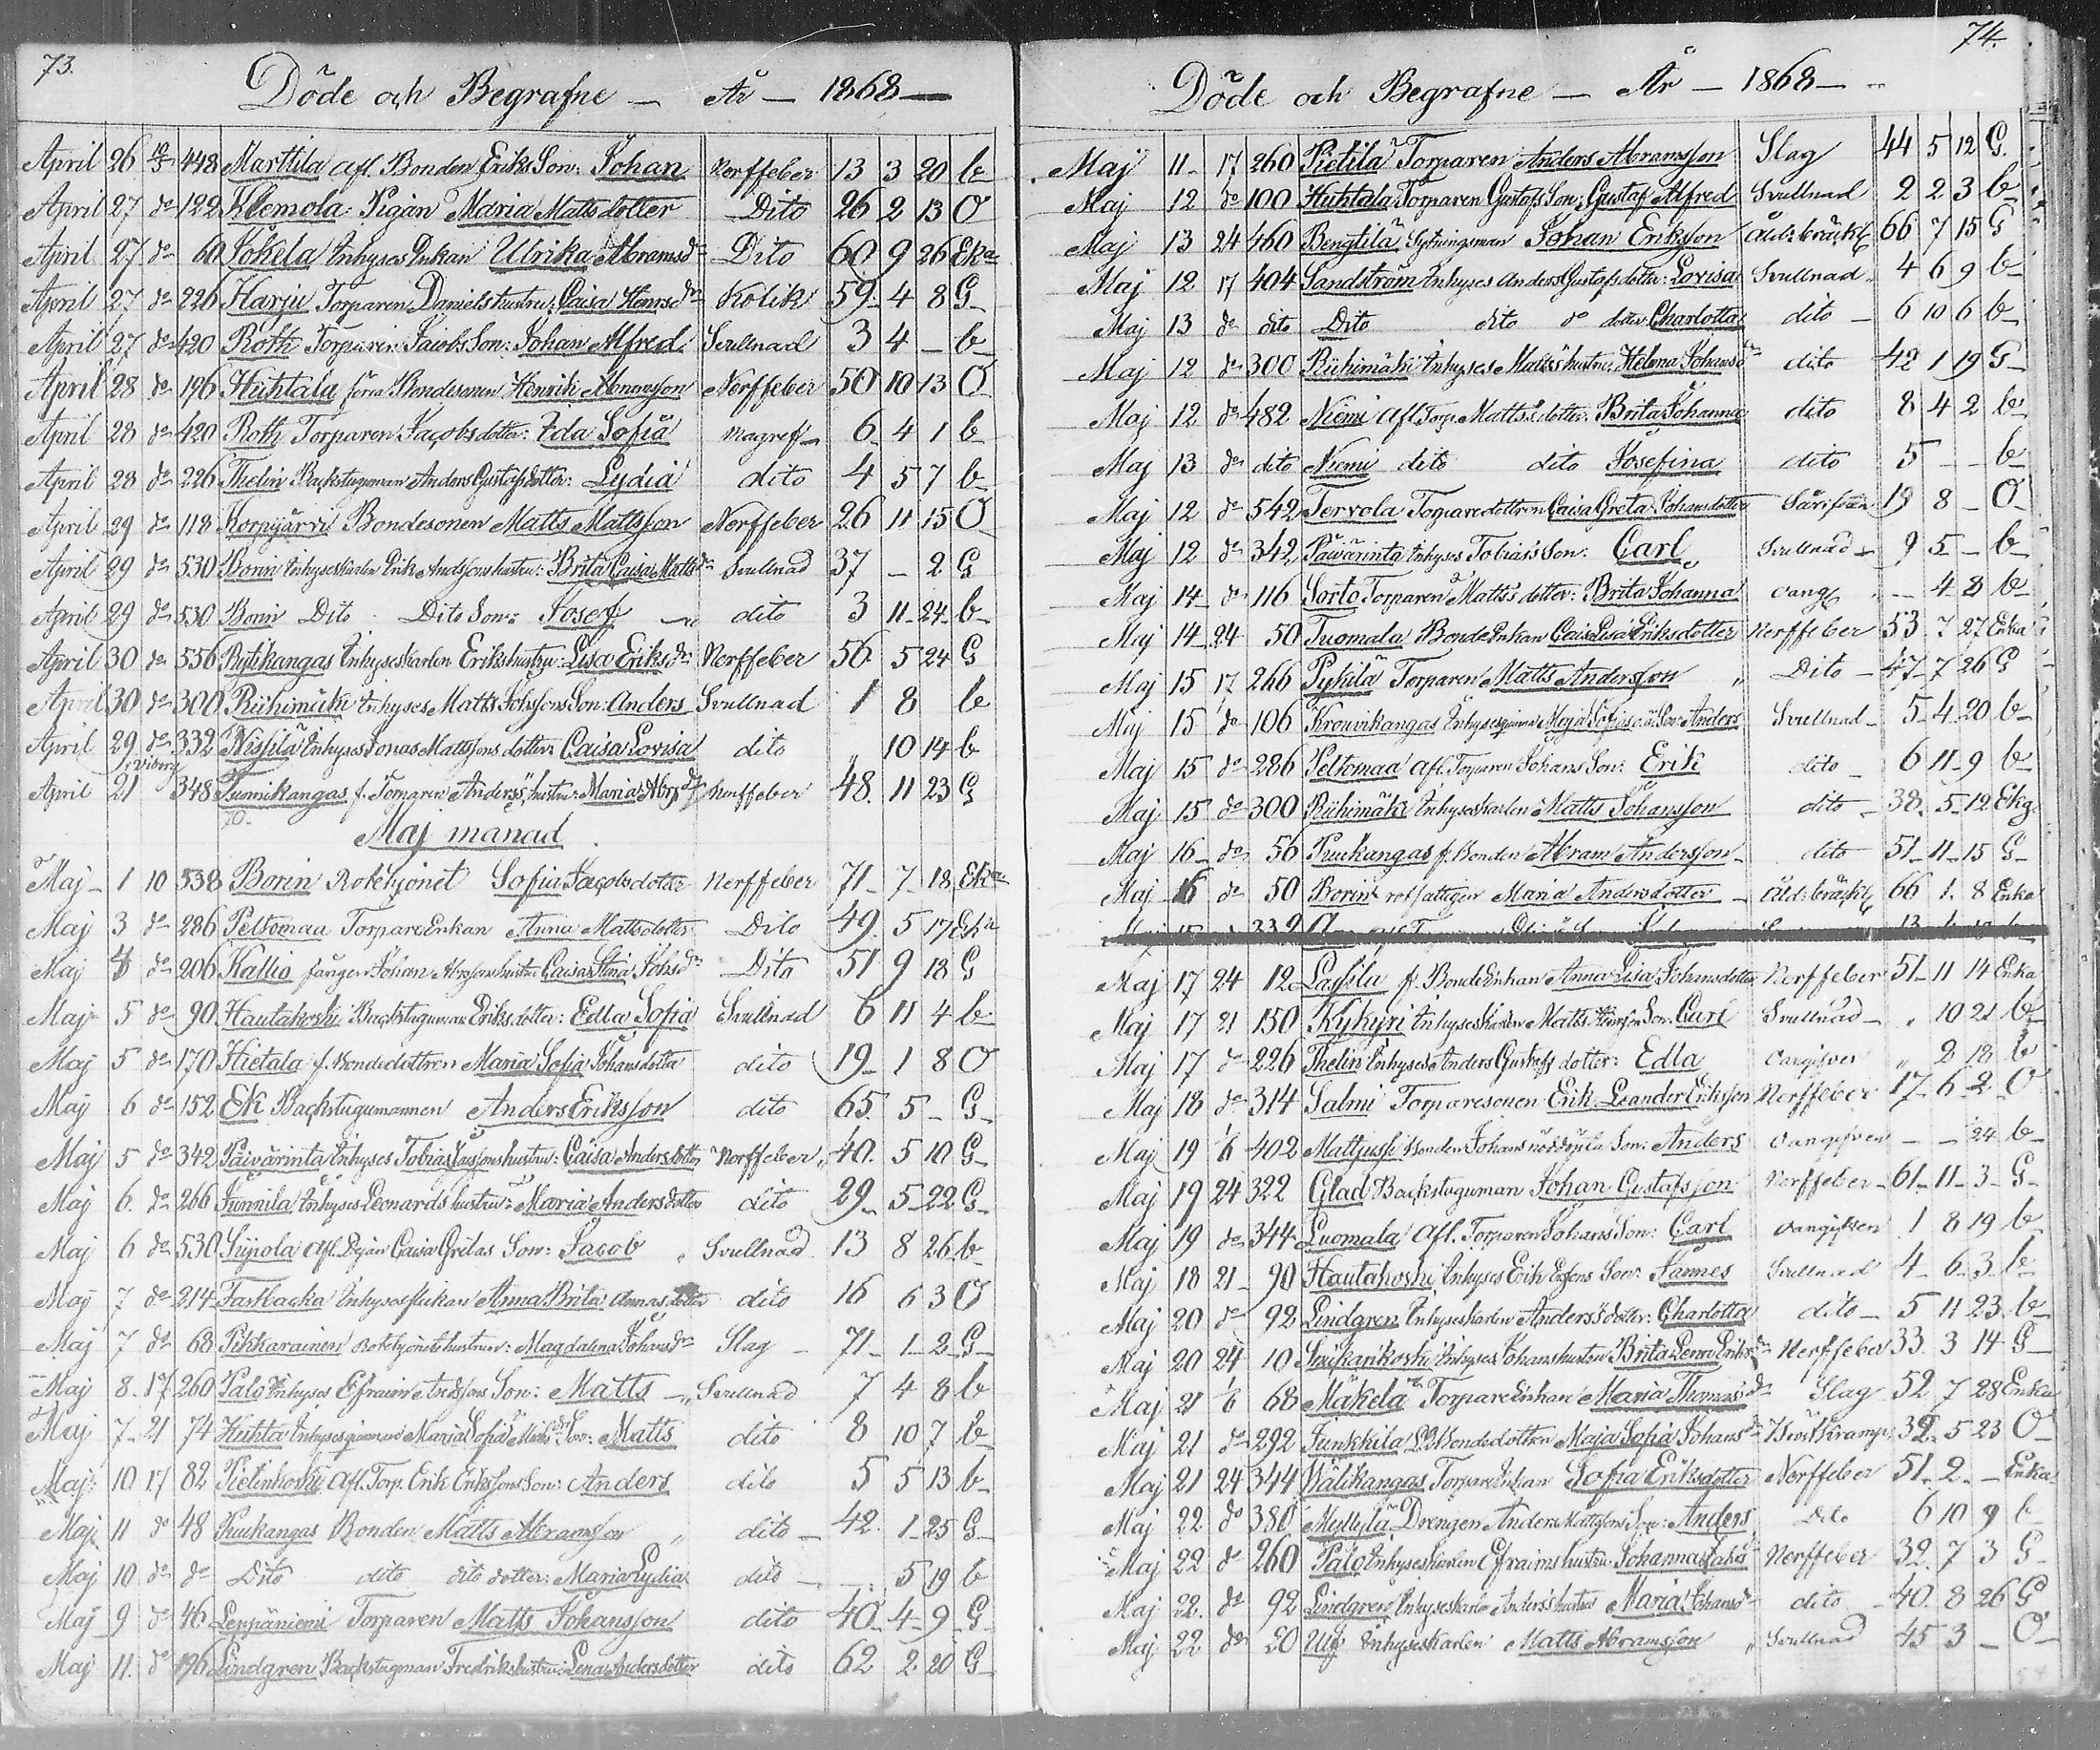 73.
Döde och Begrafne — År — 1868 —
April 26 10/5 448 Marttila afl. Bonden Eriks Son: Johan Nerffeber 13 3 20 b
April 27 do 122 Klemola Pigan Maria Mattsdotter Dito 26 2 13 O
April 27 do 60 Jokela Inhyses Enkan Ulrika Abramsdr Dito 60 9 26 Eka
April 27 do 226 Harju Torparen Daniels hustru: Caisa Henrsdr Kolik 59 4 8 G
April 27 do 420 Roth Torparen Jacobs Son: Johan Alfred Svullnad 3 4 — b
April 28 do 196 Huhtala förra Bondesonen Henrik Abramsson Nerffeber 50 10 13 O
April 28 do 420 Roth Torparen Jacobs dotter: Ida Sofia magref 6 4 1 b
April 28 do 226 Thelin Backstuguman Anders Gustafs dotter: Lydia dito 4 5 7 b
April 29 do 118 Korpijärvi Bondesonen Matts Mattsson Nerffeber 26 11 15 O
April 29 do 530 Borin Inhyseskarlen Erik Andssons hustru: Brita Caisa Mattsdr Svullnad 37 — 2 G
April 29 do 530 Borin Dito Dito Son: Josef dito 3 11 24 b
April 30 do 556 Rytikangas Inhyseskarlen Eriks hustru: Lisa Eriksdr Nerffeber 56 5 24 G
April 30 do 300 Riihimäki Inhyses Matts Johssons Son: Anders Svullnad 1 8 b
April 29 do 332 Nissilä Inhyses Jonas Mattssons dotter Caisa Lovisa dito „ 10 14 b
i Viborg
April 21 348 Tunnikangas f. Torparen Anders's hustru: Maria Abrsdr Nerffeber 48 11 23 G
Maj månad
Maj 1 10 538 Borin Rotehjonet Sofia Jacobsdotter Nerffeber 71 7 18 Eka
Maj 3 do 286 Peltomaa TorpareEnkan Anna Mattsdotter Dito 49 5 17 Eka
Maj 4 do 206 Kallio fången Johan Abrssons hustru Caisa Stina Johsdr Dito 51 9 18 G
Maj 5 do 90 Hautakoski Backstuguman Eriks dotter: Edla Sofia Svullnad 6 11 4 b
Maj 5 do 170 Hietala f. Bondedottren Maria Sofia Johansdotter dito 19 1 8 O
Maj 6 do 152 Ek Backstugumannen Anders Eriksson dito 65 5 — G
Maj 5 do 342 Päivärinta Inhyses Tobias hustru: Caisa Andersdotter Nerffeber 40 5 10 G
Maj 6 do 266 Junnila Inhyses Leonards hustru: Maria Andersdotter dito 29 5 22 G
Maj 6 do 530 Syjola afl. Pijan Caisa Gretas Son: Jacob Svullnad 13 8 26 b
Maj 7 do 214 Fastbacka Inhysesflickan Anna Brita Annasdotter dito 16 6 3 O
Maj 7 do 68 Pikkarainen rotehjonets hustru: Magdalena Johansdr Slag 71 1 2 G
Maj 8 17 260 Palo Inhyses Efraim Andssons Son: Matts Svullnad 7 4 8 b
Maj 7 21 74 Huhta Inhyses Maria Sofia Son: Matts dito 8 10 7 b
Maj 10 17 82 Pietinkoski Afl. Torp. Erik Erikssons Son: Anders dito 5 5 13 b
Maj 11 do 48 Puukangas Bonden Matts Abramsson dito 42 1 25 G
Maj 10 do do Dito dito dito dotter: Maria Lydia dito — 5 19 b
Maj 9 do 46 Leppäniemi Torparen Matts Johansson dito 40 4 9 G
Maj 11 do 196 Lindgren Backstugman Fredriks hustru: Lena Andersdotter dito 62 2 20 G
74.
Döde och Begrafne — År — 1868 —
Maj 11 17 260 Pietilä Torparen Anders Abramsson Slag 44 5 12 G
Maj 12 do 100 Huhtala Torparen Gustafs Son: Gustaf Alfred Svullnad 2 2 3 b
Maj 13 24 460 Bengtilä Sytningsman Johan Eriksson Åld:bräckl 66 7 15 G
Maj 12 17 404 Sandström Inhyses Anders Gustafs dotter: Lovisa Svullnad 4 6 9 b
Maj 13 do dito Dito dito do dotter Charlotta dito 6 10 6 b
Maj 12 do 300 Riihimäki Inhyses Matts's hustru: Helena Johansdr dito 42 1 19 G
Maj 12 do 482 Niemi Afl Torp. Matts's dotter: Brita Johanna dito 8 4 2 b
Maj 13 do dito Niemi dito dito Josefina dito 5 — — b
Maj 12 do 542 Tervola Torparedottren Caisa Greta Johansdotter 19 8 — O
Maj 12 do 342 Päivärinta Inhyses Tobias's Son: Carl Svullnad 9 5 — b
Maj 14 do 116 Sorto Torparen Matts's dotter: Brita Johanna oang — 4 8 b
Maj 14 24 50 Tuomala BondeEnkan Caisa Lisa Eriksdotter Nerffeber 53 7 27 Enka
Maj 15 17 266 Pykilä Torparen Matts Andersson Dito 47 7 26 G
Maj 15 do 106 Kronvikangas Inhyses Maja Son: Anders Svullnad 5 4 20 b
Maj 15 do 286 Peltomaa Afl. Torparen Johans Son: Erik dito 6 11 9 b
Maj 15 do 300 Riihimäki Inhyseskarlen Matts Johansson dito 38 5 12 Ekg
Maj 16 do 56 Puukangas f. Bonden Abram Andersson dito 51 11 15 G
Maj 16 do 50 Borin rotfattigen Maria Andersdotter Åld:bräckl 66 1 8 Enka
Maj 17 24 12 Lassila f. BondeEnkan Anna Lisa Johansdotter Nerffeber 51 11 14 Enka
Maj 17 21 150 Kykyri Inhyseskarlen Matts Son: Carl Svullnad „ 10 21 b
Maj 17 do 226 Thelin Inhyses Anders Gustafs dotter: Edla oangifven „ 2 18 b
Maj 18 do 314 Salmi Torparesonen Erik Leander Eriksson Nerffeber 17 6 2 O
Maj 19 1/6 402 Mattjussi Bonden Johans Son: Anders Oangifven — — 24 b
Maj 19 24 322 Glad Backstuguman Johan Gustafsson Nerffeber 61 11 3 G
Maj 19 do 344 Luomala Afl. Torparen Johans Son: Carl oangifven 1 8 19 b
Maj 18 21 90 Hautakoski Inhyses Erik Erssons Son: Jannes Svullnad 4 6 3 b
Maj 20 do 92 Lindgren Inhyseskarlen Anders's dotter: Charlotta dito 5 11 23 b
Maj 20 24 10 Inhyses Johans hustru Brita Lena Eriksdr Nerffeber 33 3 14 G
Maj 21 1/6 68 Mäkelä TorpareEnkan Maria Thomasdr Slag 52 7 28 Enka
Maj 21 do 292 Junkkila Bondedottren Maja Sofia Johansdr Kramp 32 5 23 O
Maj 21 24 344 Wälikangas TorpareEnkan Sofia Eriksdotter Nerffeber 51 2 — Enka
Maj 22 do 380 Myllylä Drengen Anders Mattssons Son: Anders Dito 6 10 9 b
Maj 22 do 260 Palo Inhyseskarlen Efraims hustru Johanna Nerffeber 32 7 3 G
Maj 22 do 92 Lindgren Inhyseskarlen Anders's hustru Maria Johansdr dito 40 8 26 G
Maj 22 do 20 Ulf Inhyseskarlen Matts Abramsson Svullnad 45 3 — O